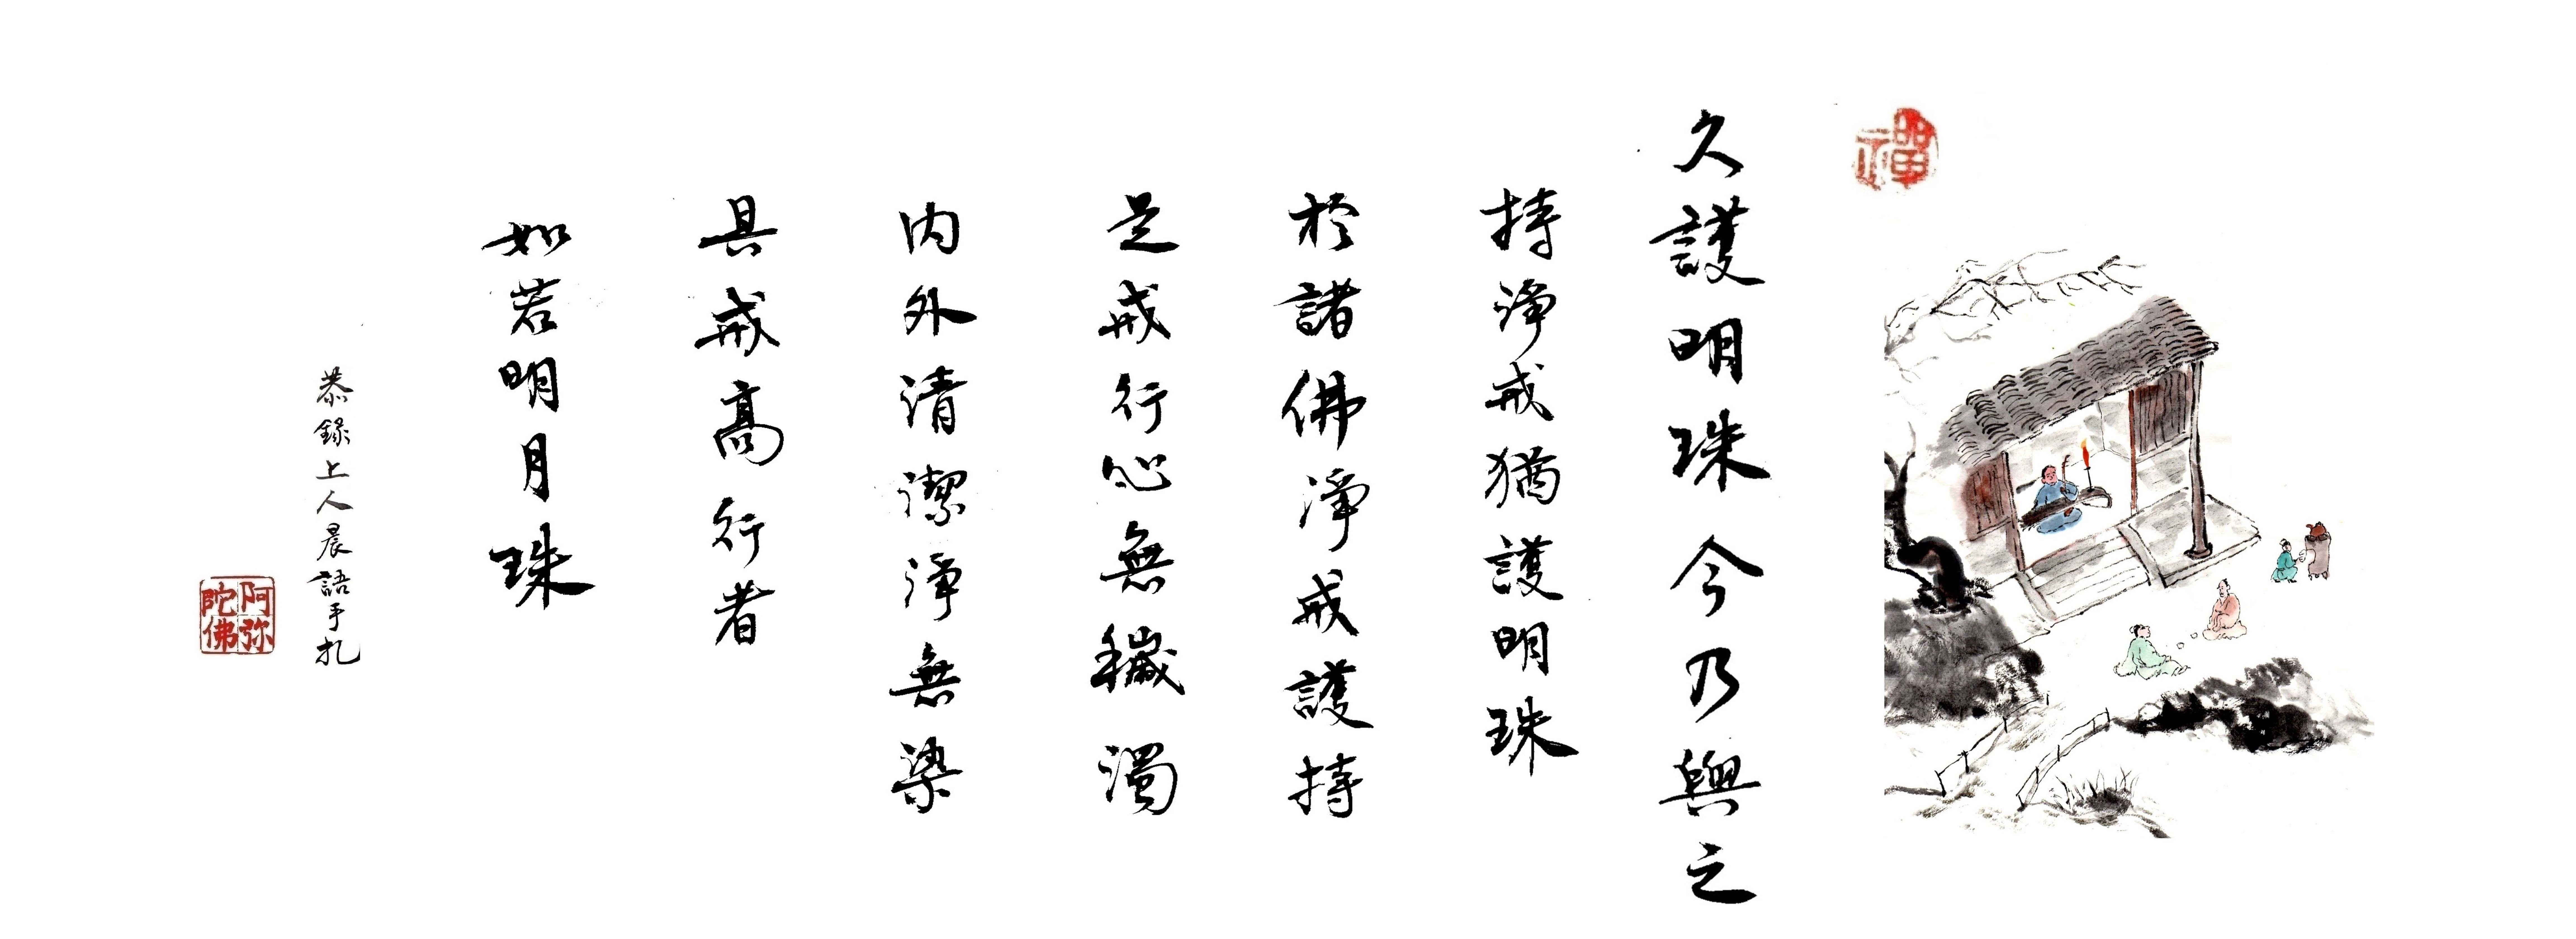 禪
久護明珠今乃與之
持淨戒猶護明珠
於諸佛淨戒護持
是戒行心無穢濁
内外清潔淨無染
具戒高行者
如若明月珠
恭錄上人晨語手札
阿弥陀佛